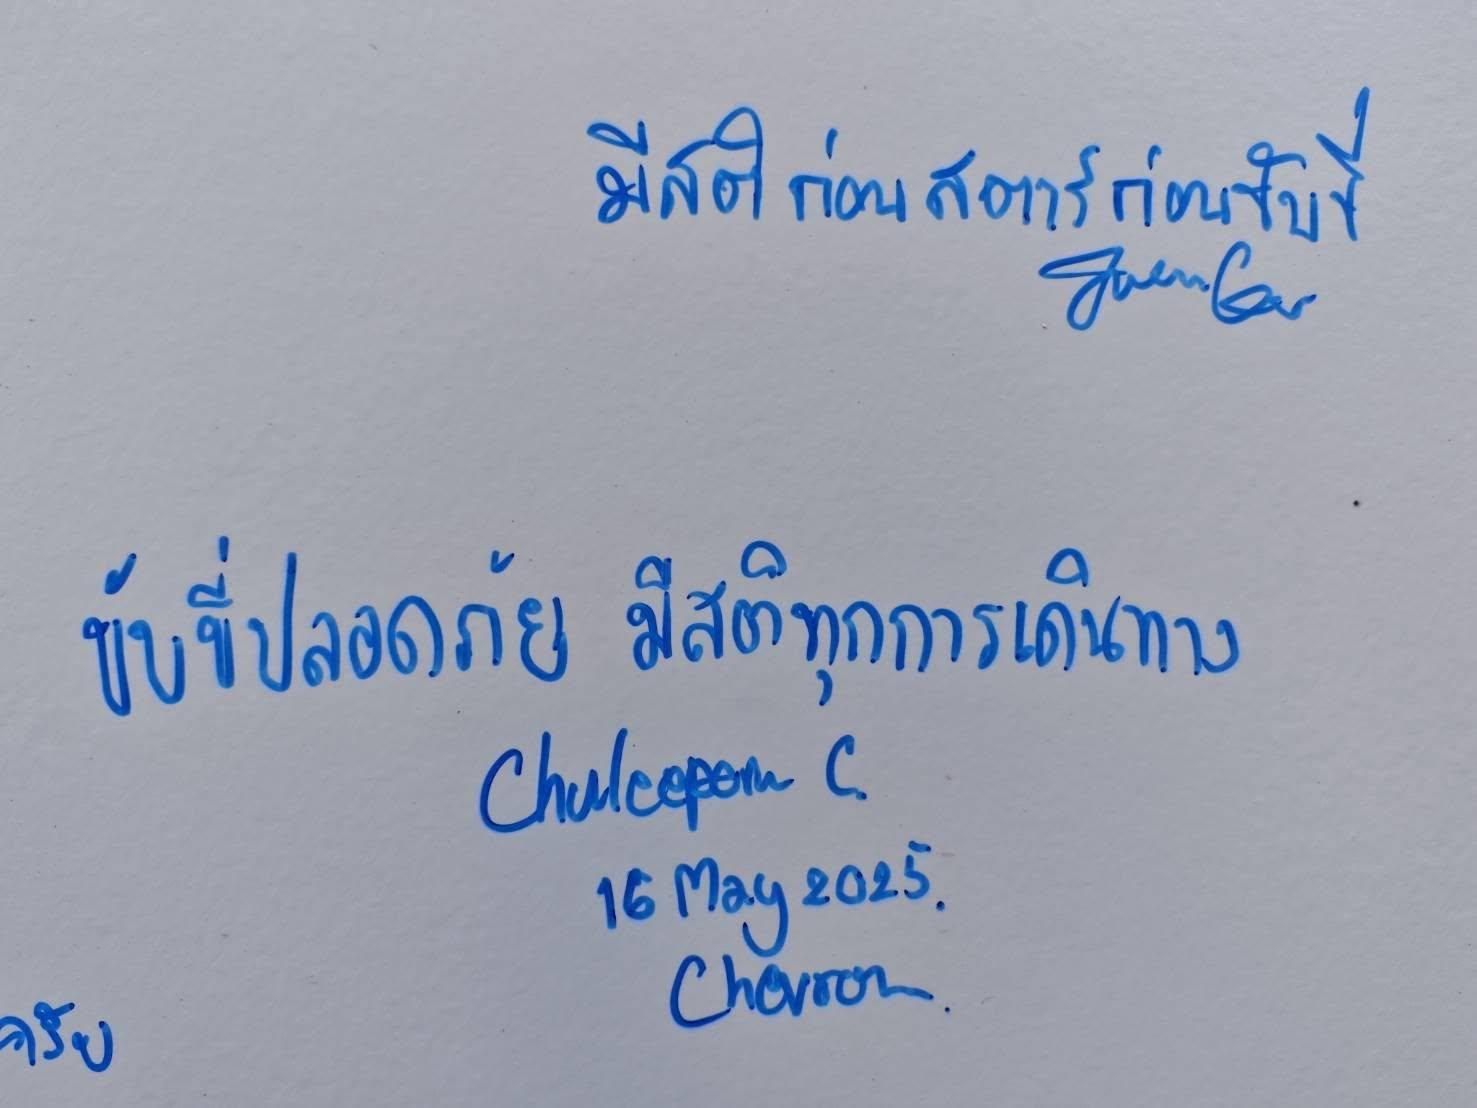 มีสติ ก่อนสตาร์ ก่อนขับขี่
ขับขี่ปลอดภัย มีสติทุกการเดินทาง
Chuleeporn C.
16 May 2025.
Chevron.
ครับ